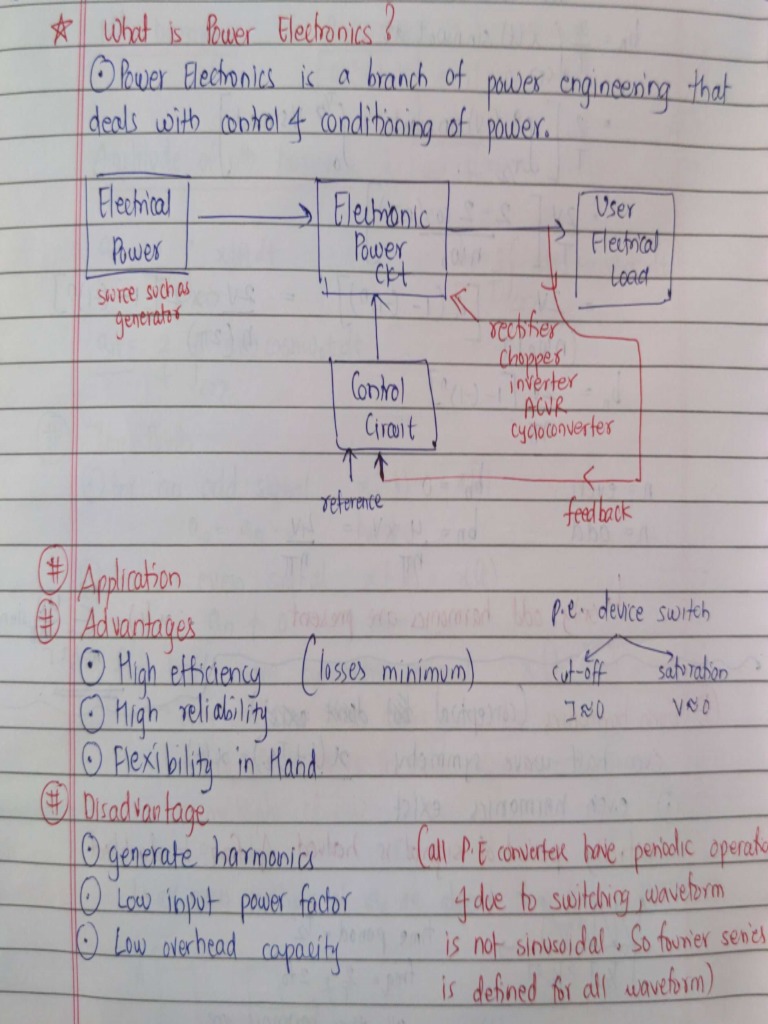 ☆ What is Power Electronics?
⊙ Power Electronics is a branch of power engineering that
deals with control & conditioning of power.
Electrical
Power
source such as
generator
Electronic
Power
CKt
User
Electrical
Load
rectifier
chopper
inverter
ACVR
cycloconverter
Control
Circuit
reference
feedback
# Application
# Advantages
⊙ High efficiency (losses minimum)
⊙ High reliability
⊙ Flexibility in Hand
p.e. device switch
cut-off saturation
I≈0 V≈0
# Disadvantage
⊙ generate harmonics
⊙ Low input power factor
⊙ Low overhead capacity
(all P.E converter have periodic operatio
& due to switching, waveform
is not sinusoidal. So fourier series
is defined for all waveform)